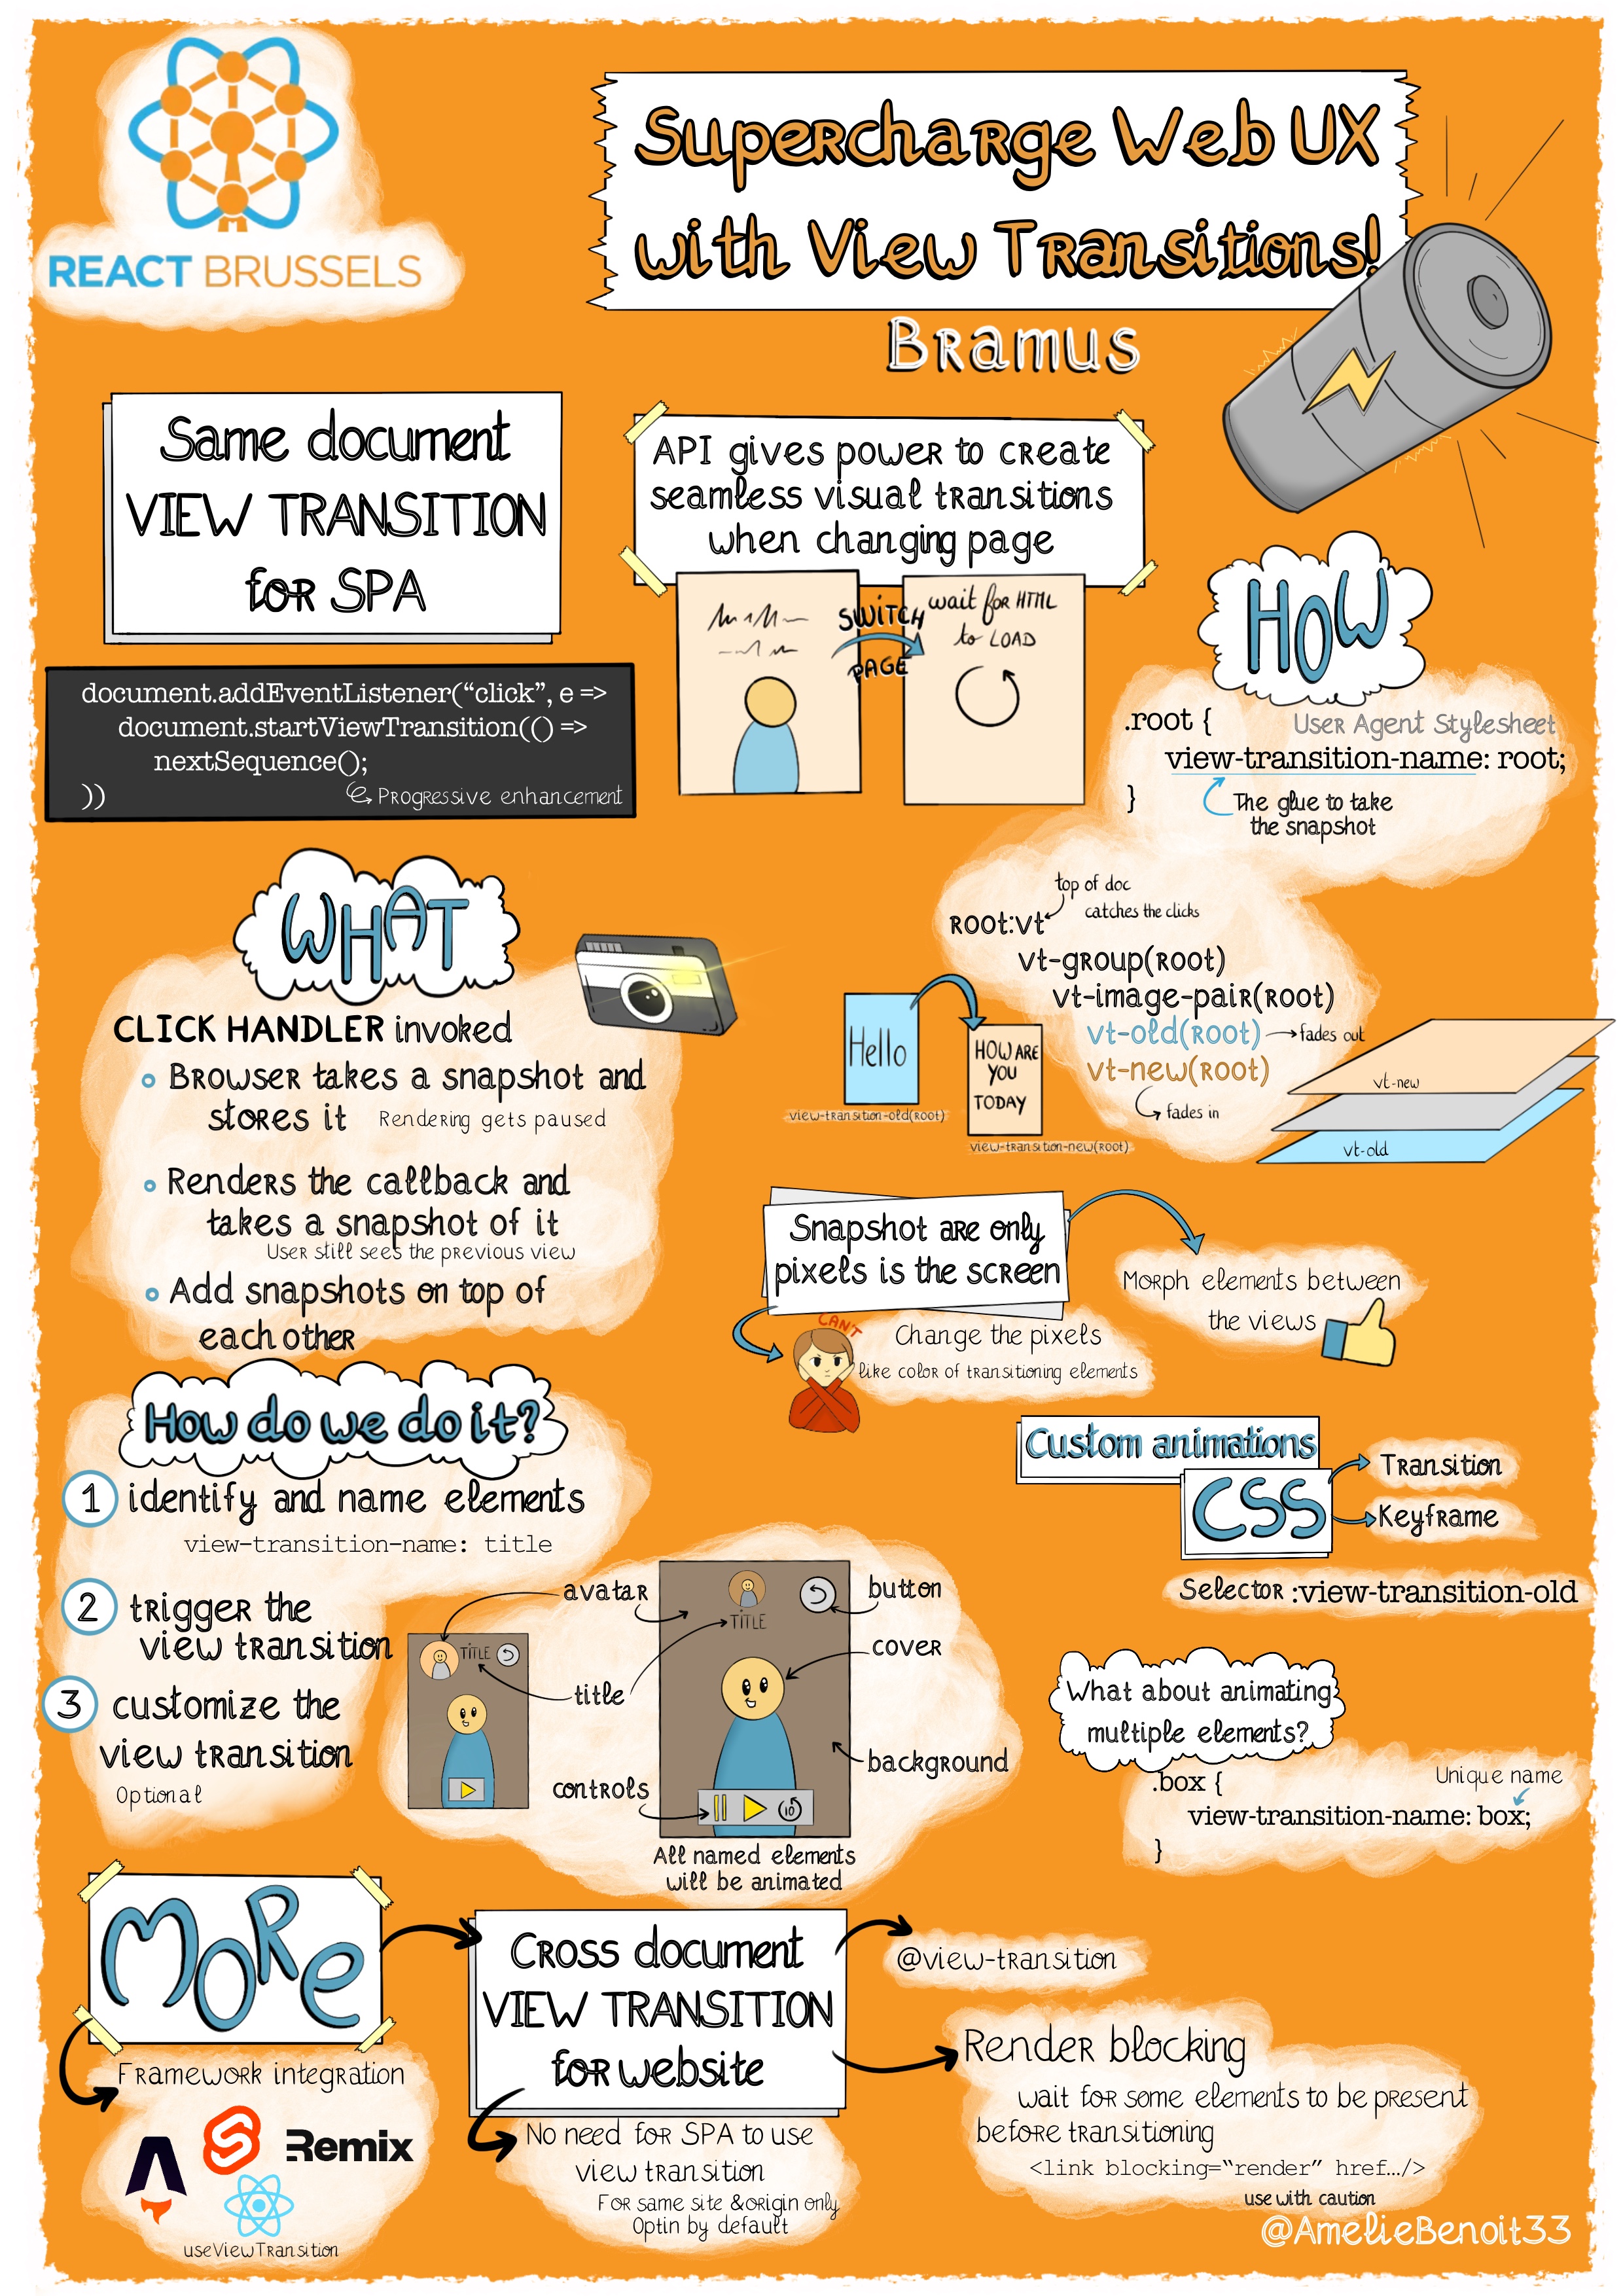 REACT BRUSSELS
Supercharge Web UX
with View Transitions!
Bramus
Same document
VIEW TRANSITION
for SPA
document.addEventListener(“click”, e =>
document.startViewTransition(() =>
nextSequence();
))
Progressive enhancement
API gives power to create
seamless visual transitions
when changing page
SWITCH
PAGE
wait for HTML
to LOAD
HOW
.root {
User Agent Stylesheet
view-transition-name: root;
}
The glue to take
the snapshot
top of doc
catches the clicks
root:vt
vt-group(root)
vt-image-pair(root)
vt-old(root)
fades out
vt-new(root)
fades in
Hello
view-transition-old(root)
HOW ARE
YOU
TODAY
view-transition-new(root)
vt-new
vt-old
WHAT
CLICK HANDLER invoked
Browser takes a snapshot and
stores it
Rendering gets paused
Renders the callback and
takes a snapshot of it
User still sees the previous view
Add snapshots on top of
each other
Snapshot are only
pixels is the screen
Morph elements between
the views
CAN'T
Change the pixels
like color of transitioning elements
How do we do it?
1 identify and name elements
view-transition-name: title
2 trigger the
view transition
3 customize the
view transition
Optional
avatar
TITLE
title
controls
TITLE
button
cover
background
10
All named elements
will be animated
Custom animations
CSS
Transition
Keyframe
Selector :view-transition-old
What about animating
multiple elements?
.box {
Unique name
view-transition-name: box;
}
MORe
Framework integration
Remix
useViewTransition
Cross document
VIEW TRANSITION
for website
No need for SPA to use
view transition
For same site & origin only
Optin by default
@view-transition
Render blocking
wait for some elements to be present
before transitioning
<link blocking=“render” href.../>
use with caution
@AmelieBenoit33